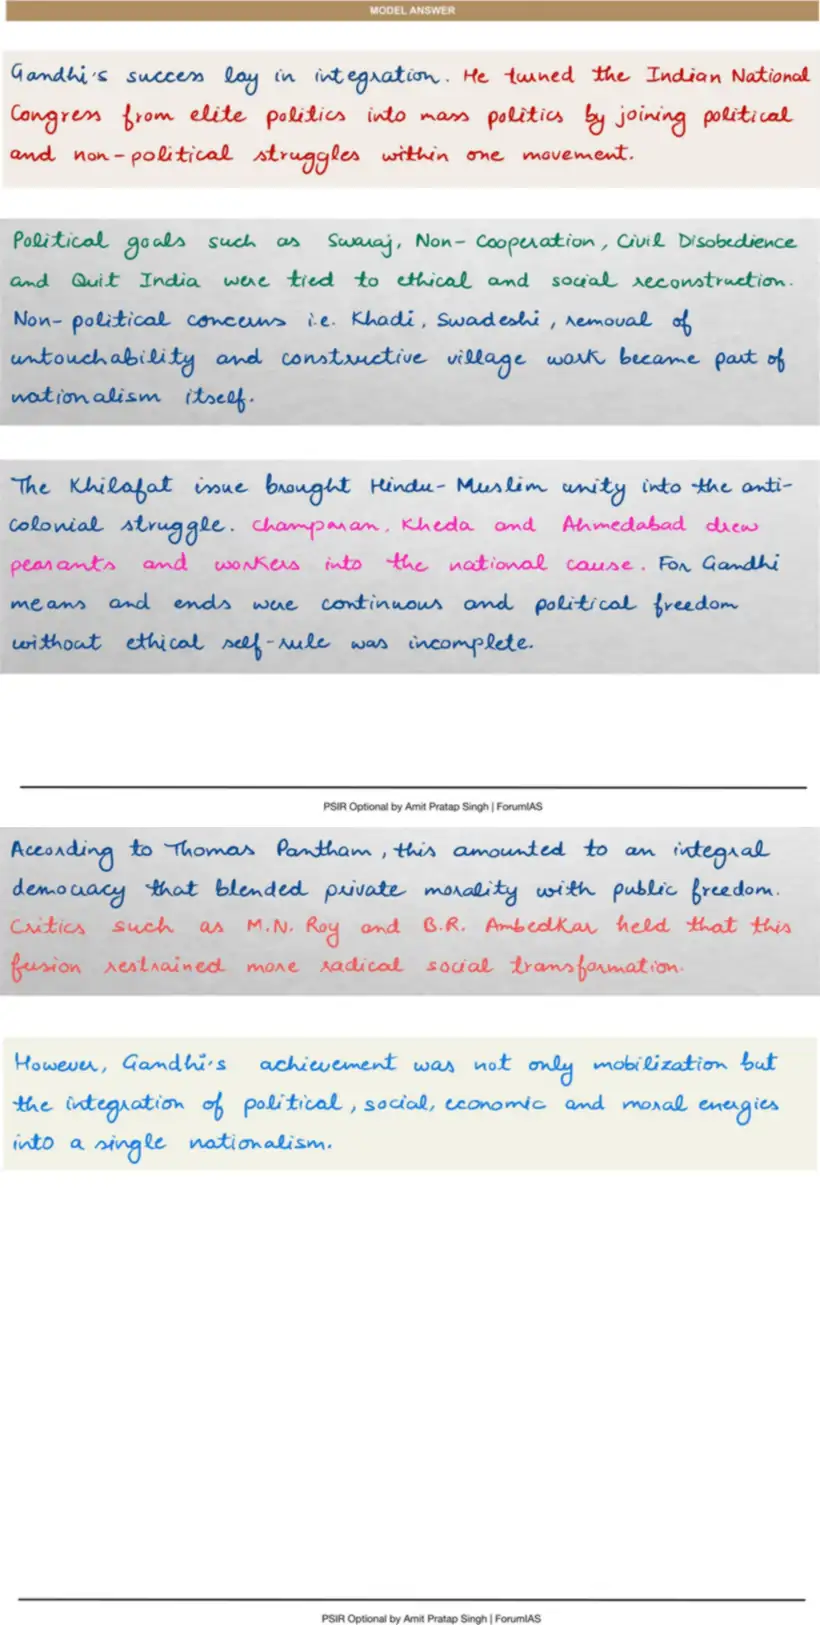 MODEL ANSWER
Gandhi's success lay in integration. He turned the Indian National
Congress from elite politics into mass politics by joining political
and non-political struggles within one movement.
Political goals such as Swaraj, Non-Cooperation, Civil Disobedience
and Quit India were tied to ethical and social reconstruction.
Non-political concerns i.e. Khadi, Swadeshi, removal of
untouchability and constructive village work became part of
nationalism itself.
The Khilafat issue brought Hindu-Muslim unity into the anti-
colonial struggle. Champaran, Kheda and Ahmedabad drew
peasants and workers into the national cause. For Gandhi
means and ends were continuous and political freedom
without ethical self-rule was incomplete.
PSIR Optional by Amit Pratap Singh | ForumIAS
According to Thomas Pantham, this amounted to an integral
democracy that blended private morality with public freedom.
Critics such as M.N. Roy and B.R. Ambedkar held that this
fusion restrained more radical social transformation.
However, Gandhi's achievement was not only mobilization but
the integration of political, social, economic and moral energies
into a single nationalism.
PSIR Optional by Amit Pratap Singh | ForumIAS